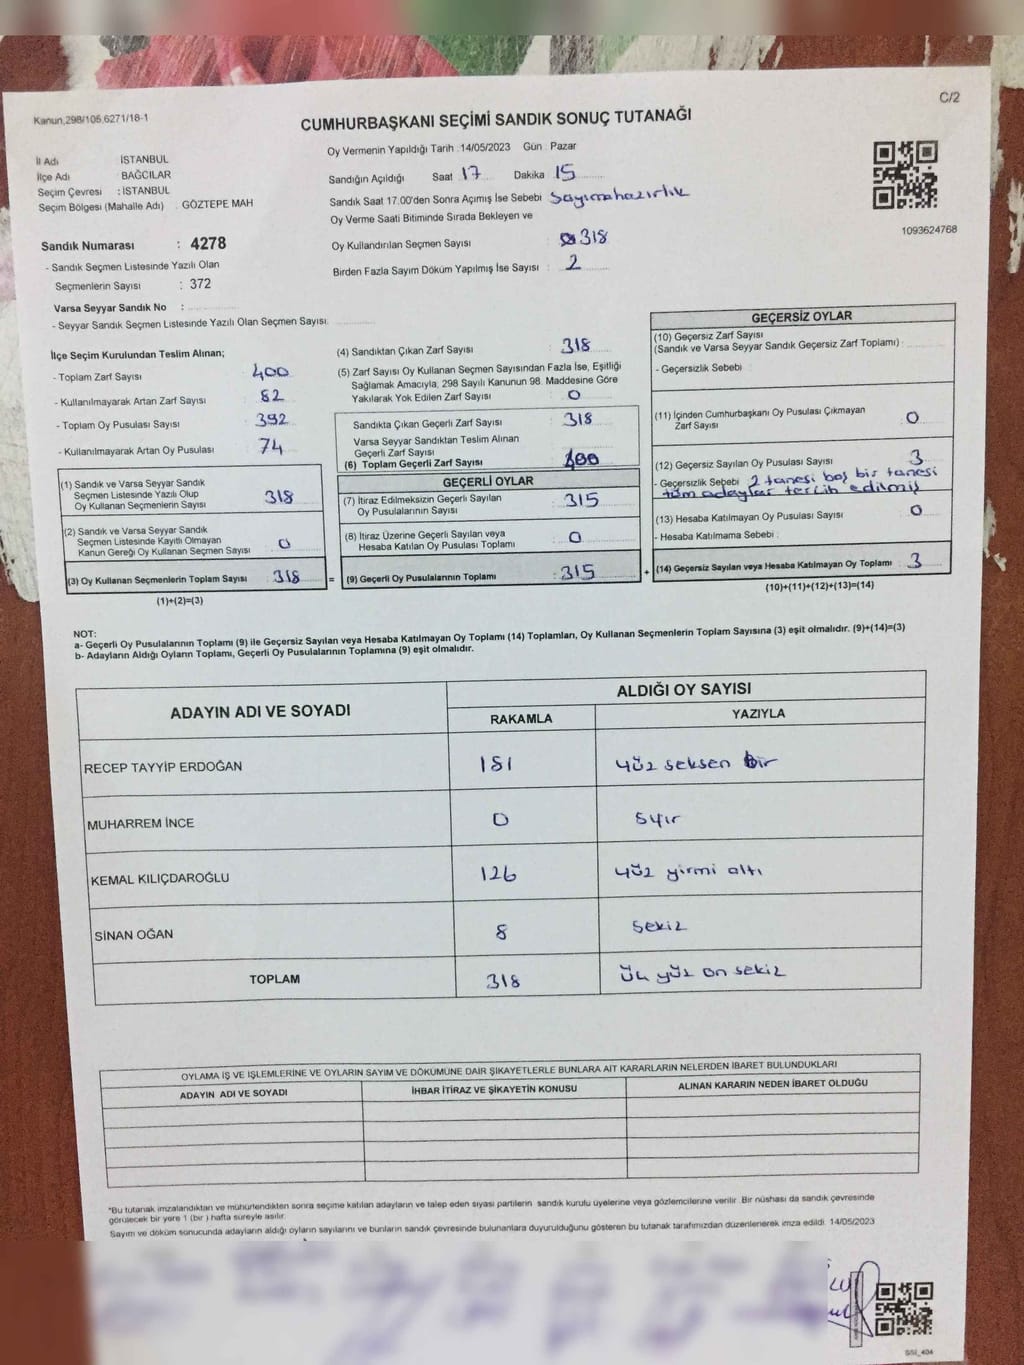 C/2
Kanun,298/105,6271/18-1
CUMHURBAŞKANI SEÇİMİ SANDIK SONUÇ TUTANAĞI
İl Adı İSTANBUL
İlçe Adı : BAĞCILAR
Seçim Çevresi : İSTANBUL
Seçim Bölgesi (Mahalle Adı) : GÖZTEPE MAH
Sandık Numarası : 4278
- Sandık Seçmen Listesinde Yazılı Olan
Seçmenlerin Sayısı : 372
Varsa Seyyar Sandık No :
- Seyyar Sandık Seçmen Listesinde Yazılı Olan Seçmen Sayısı:
Oy Vermenin Yapıldığı Tarih : 14/05/2023 Gün : Pazar
Sandığın Açıldığı Saat : 17 Dakika 15
Sandık Saat 17.00'den Sonra Açımış İse Sebebi Sayıma hazırlık
Oy Verme Saati Bitiminde Sırada Bekleyen ve
Oy Kullandırılan Seçmen Sayısı : 318
Birden Fazla Sayım Döküm Yapılmış İse Sayısı : 2
1093624768
İlçe Seçim Kurulundan Teslim Alınan;
- Toplam Zarf Sayısı 400
- Kullanılmayarak Artan Zarf Sayısı 82
- Toplam Oy Pusulası Sayısı 392
- Kullanılmayarak Artan Oy Pusulası 74
(1) Sandık ve Varsa Seyyar Sandık
Seçmen Listesinde Yazılı Olup
Oy Kullanan Seçmenlerin Sayısı 318
(2) Sandık ve Varsa Seyyar Sandık
Seçmen Listesinde Kayıtlı Olmayan
Kanun Gereği Oy Kullanan Seçmen Sayısı 0
(3) Oy Kullanan Seçmenlerin Toplam Sayısı : 318 =
(1)+(2)=(3)
(4) Sandıktan Çıkan Zarf Sayısı : 318
(5) Zarf Sayısı Oy Kullanan Seçmen Sayısından Fazla İse, Eşitliği
Sağlamak Amacıyla, 298 Sayılı Kanunun 98. Maddesine Göre
Yakılarak Yok Edilen Zarf Sayısı : 0
Sandıkta Çıkan Geçerli Zarf Sayısı : 318
Varsa Seyyar Sandıktan Teslim Alınan
Geçerli Zarf Sayısı :
(6) Toplam Geçerli Zarf Sayısı 400
GEÇERLİ OYLAR
(7) İtiraz Edilmeksizin Geçerli Sayılan
Oy Pusulalarının Sayısı : 315
(8) İtiraz Üzerine Geçerli Sayılan veya
Hesaba Katılan Oy Pusulası Toplamı : 0
(9) Geçerli Oy Pusulalarının Toplamı : 315 +
GEÇERSİZ OYLAR
(10) Geçersiz Zarf Sayısı
(Sandık ve Varsa Seyyar Sandık Geçersiz Zarf Toplamı) :
- Geçersizlik Sebebi :
(11) İçinden Cumhurbaşkanı Oy Pusulası Çıkmayan
Zarf Sayısı 0
(12) Geçersiz Sayılan Oy Pusulası Sayısı : 3
- Geçersizlik Sebebi 2 tanesi boş bir tanesi
tüm adaylar tercih edilmiş
(13) Hesaba Katılmayan Oy Pusulası Sayısı : 0
- Hesaba Katılmama Sebebi :
(14) Geçersiz Sayılan veya Hesaba Katılmayan Oy Toplamı : 3
(10)+(11)+(12)+(13)=(14)
NOT:
a- Geçerli Oy Pusulalarının Toplamı (9) ile Geçersiz Sayılan veya Hesaba Katılmayan Oy Toplamı (14) Toplamları, Oy Kullanan Seçmenlerin Toplam Sayısına (3) eşit olmalıdır. (9)+(14)=(3)
b- Adayların Aldığı Oyların Toplamı, Geçerli Oy Pusulalarının Toplamına (9) eşit olmalıdır.
ADAYIN ADI VE SOYADI ALDIĞI OY SAYISI
RAKAMLA YAZIYLA
RECEP TAYYİP ERDOĞAN 181 yüz seksen bir
MUHARREM İNCE 0 sıfır
KEMAL KILIÇDAROĞLU 126 yüz yirmi altı
SİNAN OĞAN 8 sekiz
TOPLAM 318 üç yüz on sekiz
OYLAMA İŞ VE İŞLEMLERİNE VE OYLARIN SAYIM VE DÖKÜMÜNE DAİR ŞİKAYETLERLE BUNLARA AİT KARARLARIN NELERDEN İBARET BULUNDUKLARI
ADAYIN ADI VE SOYADI İHBAR İTİRAZ VE ŞİKAYETİN KONUSU ALINAN KARARIN NEDEN İBARET OLDUĞU
*Bu tutanak imzalandıktan ve mühürlendikten sonra seçime katılan adayların ve talep eden siyasi partilerin sandık kurulu üyelerine veya gözlemcilerine verilir. Bir nüshası da sandık çevresinde
görülecek bir yere 1 (bir) hafta süreyle asılır.
Sayım ve döküm sonucunda adayların aldığı oyların sayılarını ve bunların sandık çevresinde bulunanlara duyurulduğunu gösteren bu tutanak tarafımızdan düzenlenerek imza edildi. 14/05/2023
SSI_404